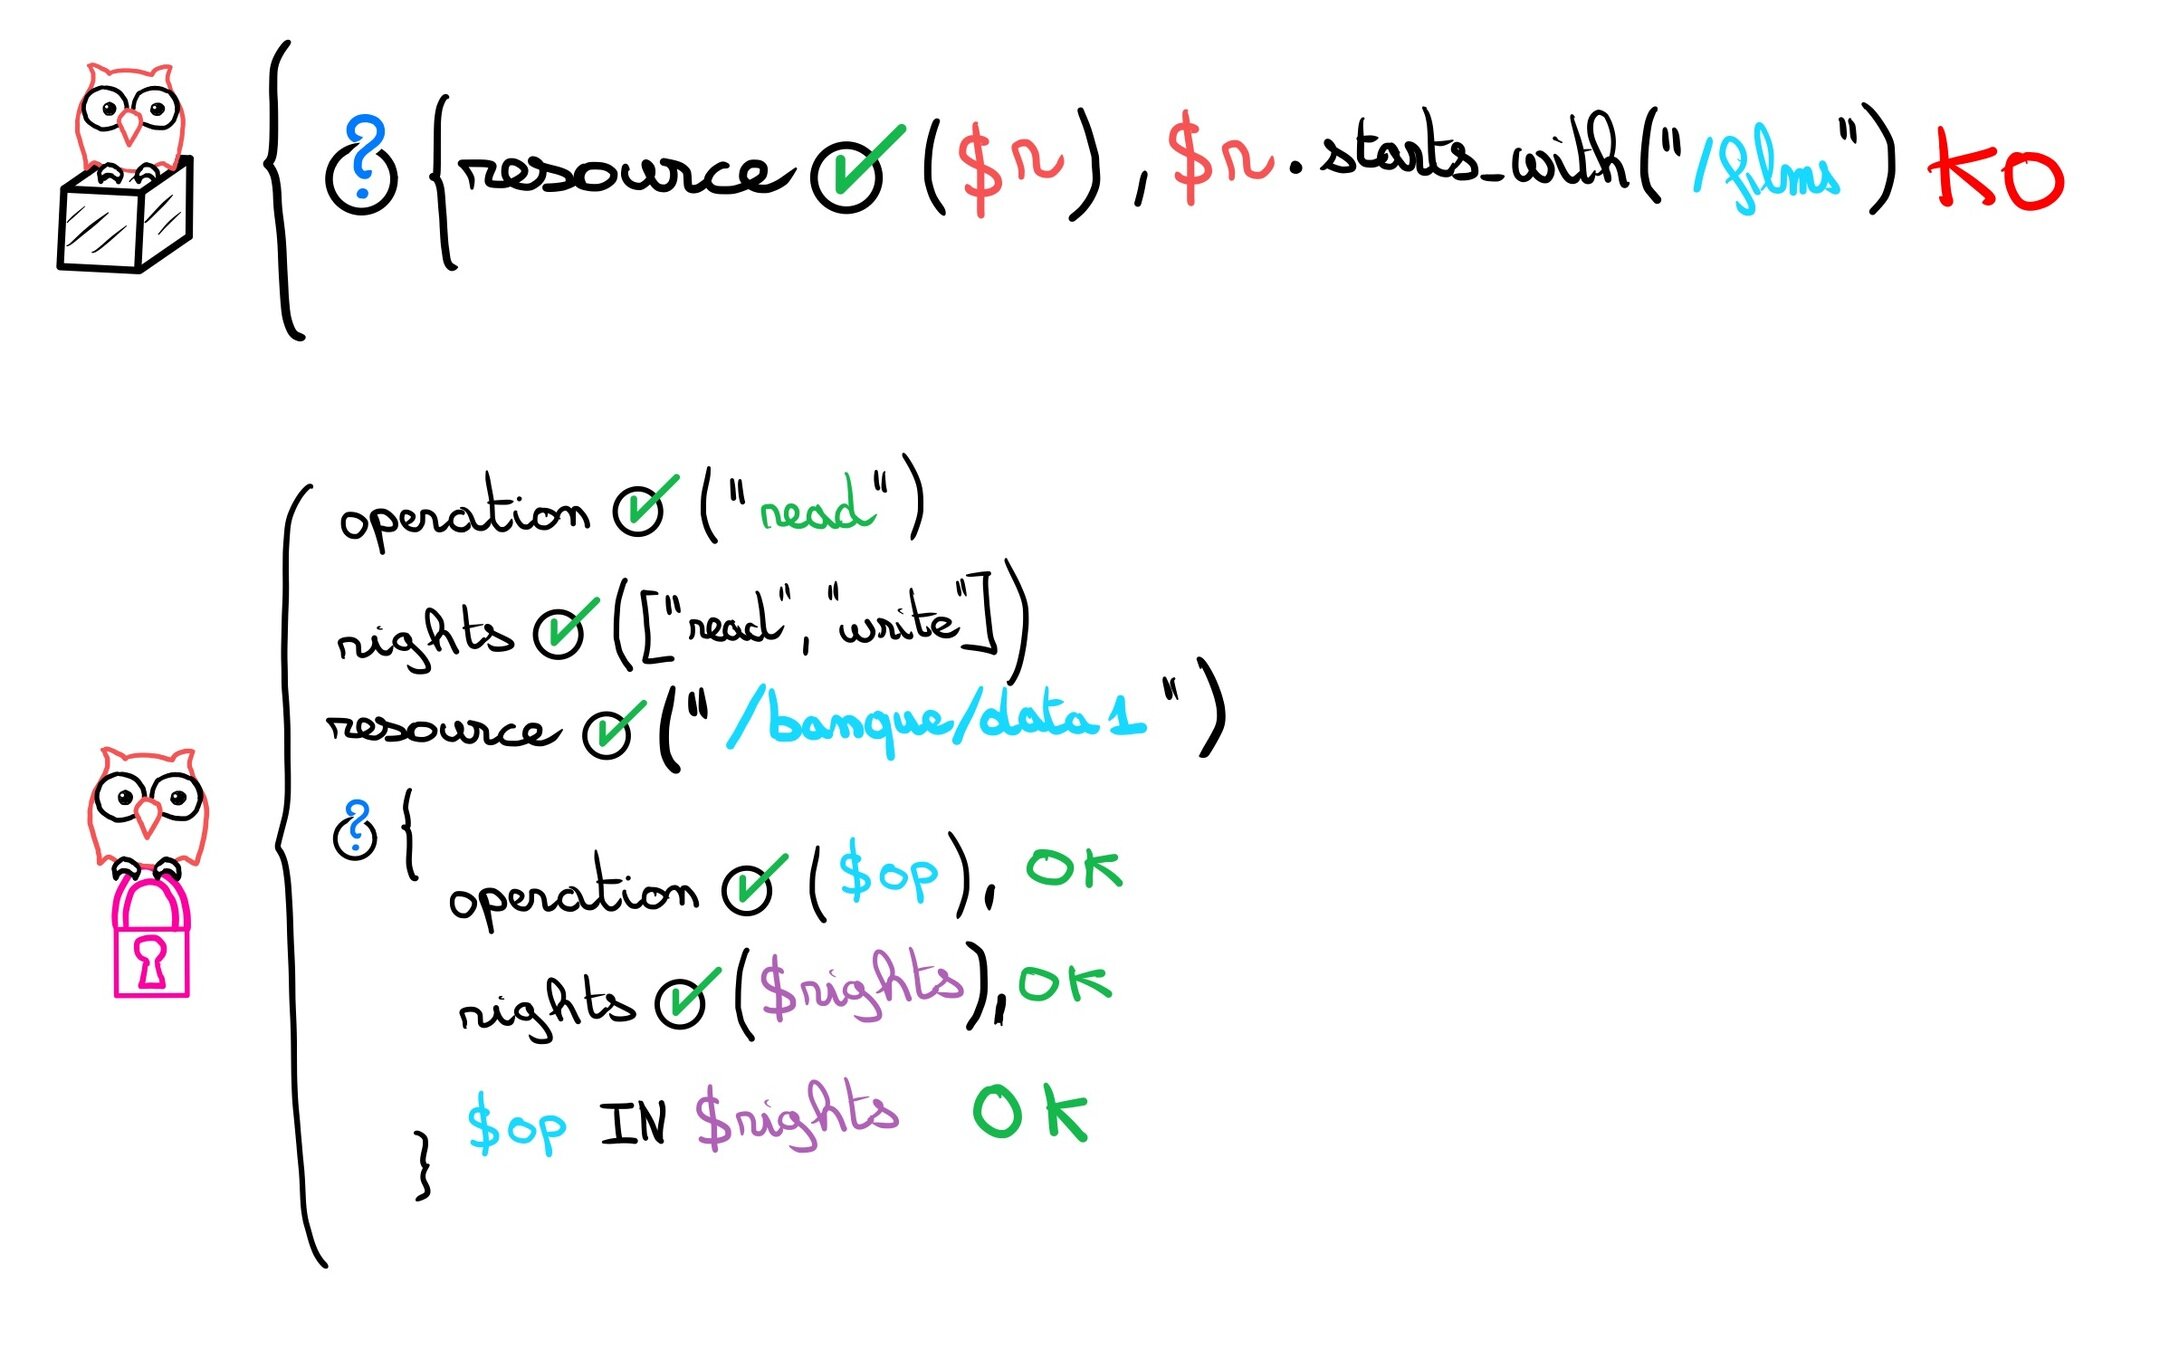 ? { resource ✓ ($r), $r.starts_with("/films") KO
operation ✓ ("read")
rights ✓ (["read", "write"])
resource ✓ ("/banque/data1")
? {
operation ✓ ($op), OK
rights ✓ ($rights), OK
$op IN $rights OK
}